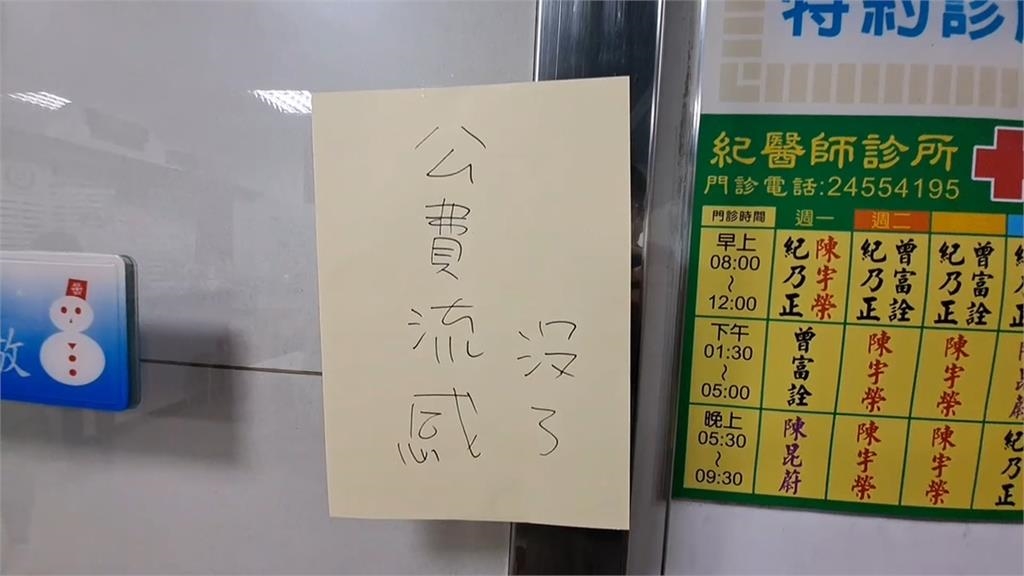 公費流感
沒了
放
特約診
紀醫師診所
門診電話:24554195
門診時間 週一 週二
早上 08:00~12:00 紀乃正 陳宇榮 紀乃正 曾富詮 紀乃正 曾富詮
下午 01:30~05:00 曾富詮 陳宇榮 陳宇榮
晚上 05:30~09:30 陳昆蔚 陳宇榮 陳宇榮 紀乃正